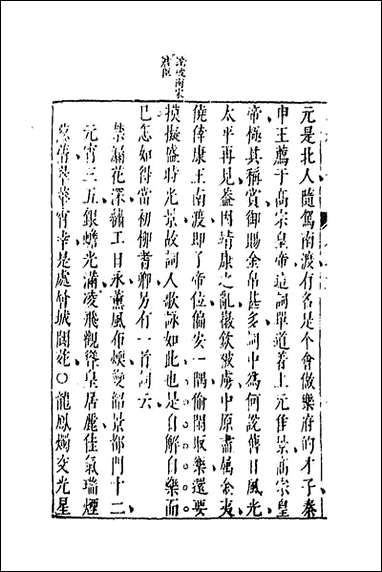 南宋
元是北人隨駕南渡有名是个會做樂府的才子秦
申王薦于高宗皇帝這詞單道着上元佳景高宗皇
帝極其稱賞御賜金帛甚多詞中爲何說舊日風光
太平再見蓋因靖康之亂徽欽被虜中原盡屬金夷
僥倖康王南渡即了帝位偏安一隅偷閒取樂還要
摸擬盛時光景故詞人歌詠如此也是自解自樂而
已怎如得當初柳耆卿另有一首詞云
禁漏花深繡工日永薰風布煖變韶景都門十二
元宵三五銀蟾光滿凌飛觀聳皇居麗佳氣瑞煙
葱蒨翠華宵幸是處層城閬苑○龍鳳燭交光星